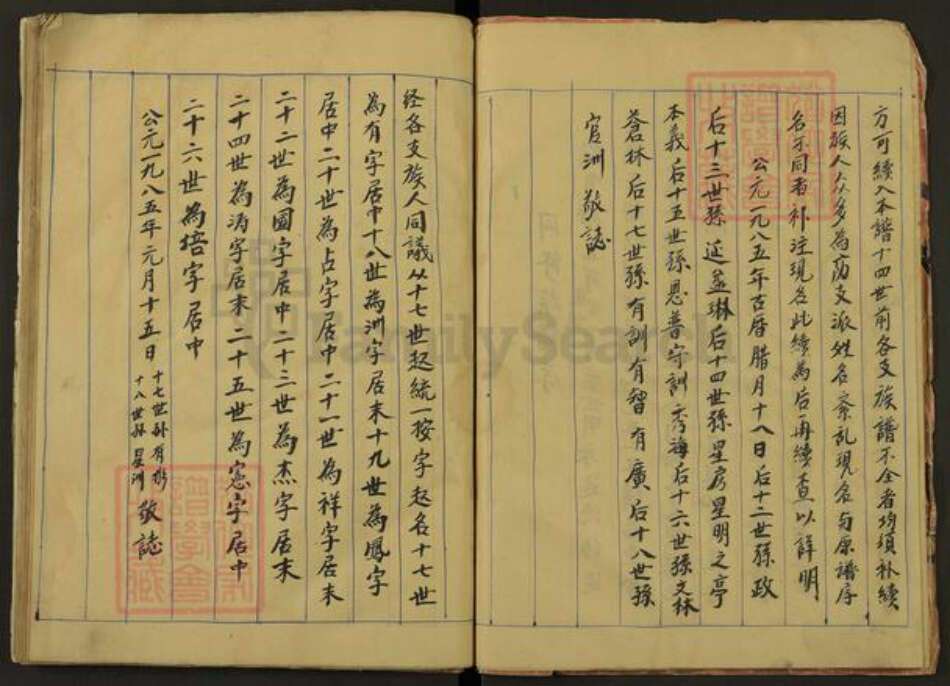 方可續入本譜十四世前各支族譜不全者均須补續
因族人众多為荫支派姓名紊乱現名与原譜序
名不同者补注現名此續為后再續查以詳明
公元一九八五年古曆腊月十八日后十二世孫政
后十三世孫延孟琳后十四世孫星房星明之亭
本義后十五世孫恩普守訓秀海后十六世孫文林
蒼林后十七世孫有訓有智有廣后十八世孫
官洲敬誌
经各支族人同議从十七世起統一按字起名十七世
為有字居中十八世為洲字居末十九世為鳳字
居中二十世為占字居中二十一世為祥字居末
二十二世為國字居中二十三世為杰字居末
二十四世為涛字居末二十五世為憲字居中
二十六世為培字居中
公元一九八五年元月十五日 十七世孫有彬 十八世孫星洲 敬誌
FamilySearch